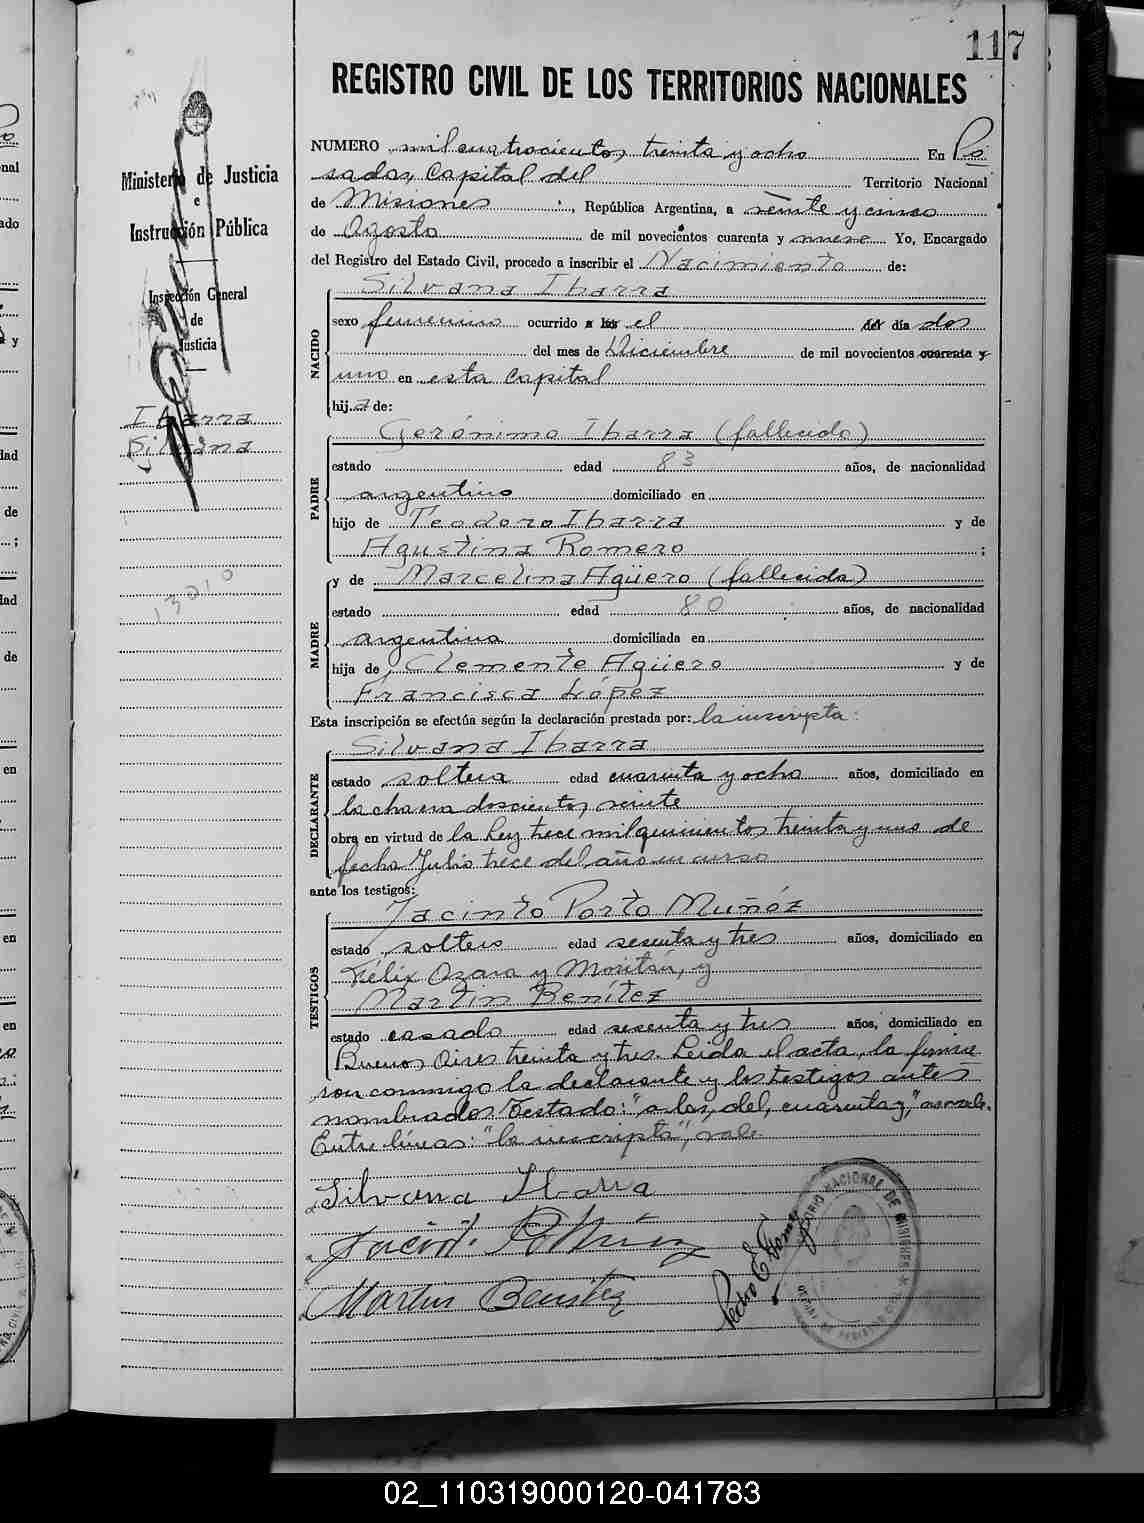 117
REGISTRO CIVIL DE LOS TERRITORIOS NACIONALES
Ministerio de Justicia
e
Instrucción Pública
Inspección General
de
Justicia
Ibarra
Silvana
13010
NUMERO mil cuatrocientos treinta y ocho En Po
sadas, Capital del Territorio Nacional
de Misiones, República Argentina, a veinte y cinco
de Agosto de mil novecientos cuarenta y nueve Yo, Encargado
del Registro del Estado Civil, procedo a inscribir el Nacimiento de:
NACIDO
Silvana Ibarra
sexo femenino ocurrido a las el del día dos
del mes de Diciembre de mil novecientos cuarenta y
uno en esta Capital
hija de:
PADRE
Gerónimo Ibarra (fallecido)
estado edad 83 años, de nacionalidad
argentino domiciliado en
hijo de Teodoro Ibarra y de
Agustina Romero ;
MADRE
y de Marcelina Agüero (fallecida)
estado edad 80 años, de nacionalidad
argentina domiciliada en
hija de Clemente Agüero y de
Francisca López
Esta inscripción se efectúa según la declaración prestada por: la inscripta:
DECLARANTE
Silvana Ibarra
estado soltera edad cuarenta y ocho años, domiciliado en
la chacra doscientos veinte
obra en virtud de la Ley trece mil quinientos treinta y uno de
fecha Julio trece del año en curso
ante los testigos:
TESTIGOS
Jacinto Porto Muñóz
estado soltero edad sesenta y tres años, domiciliado en
Félix Azara y Moritán, y
Martin Benítez
estado casado edad sesenta y tres años, domiciliado en
Buenos Aires treinta y tres. Leida el acta, la firma
ron conmigo la declarante y los testigos antes
nombrados. Testado: "a las, del, cuarenta y," no vale.
Entre líneas: "la inscripta", vale.
Silvana Ibarra
Martin Benitez
Pedro E.
02_110319000120-041783